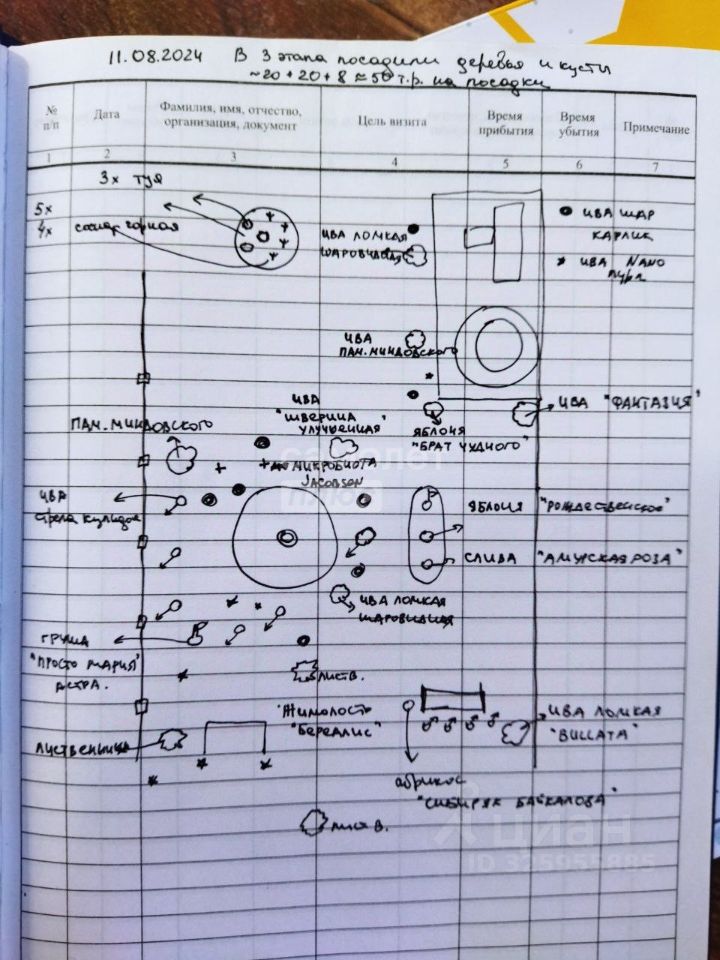 11.08.2024 В 3 этапа посадили деревья и кусты
~20+20+8 ≈ 50 т.р. на посадки
№ п/п
Дата
Фамилия, имя, отчество,
организация, документ
Цель визита
Время
прибытия
Время
убытия
Примечание
1 2 3 4 5 6 7
3х туя
5х
4х сосна горная
ива ломкая
шаровидная
ива шар
карлик
ива Nano
пурп
ива
пам. миндовского
ива "фантазия"
яблоня
"брат чудного"
ива
"шверина
улучшенная"
пам. миндовского
микробиота
Jacobson
самолет
плюс
ива
стрела купидона
яблоня "рождественское"
слива "амурская роза"
ива ломкая
шаровидная
груша
"просто мария"
астра.
листв.
жимолость
"Бореалис"
ива ломкая
"Bullata"
лиственница
абрикос
"сибиряк байкалова"
листв.
циан
ID 325955885